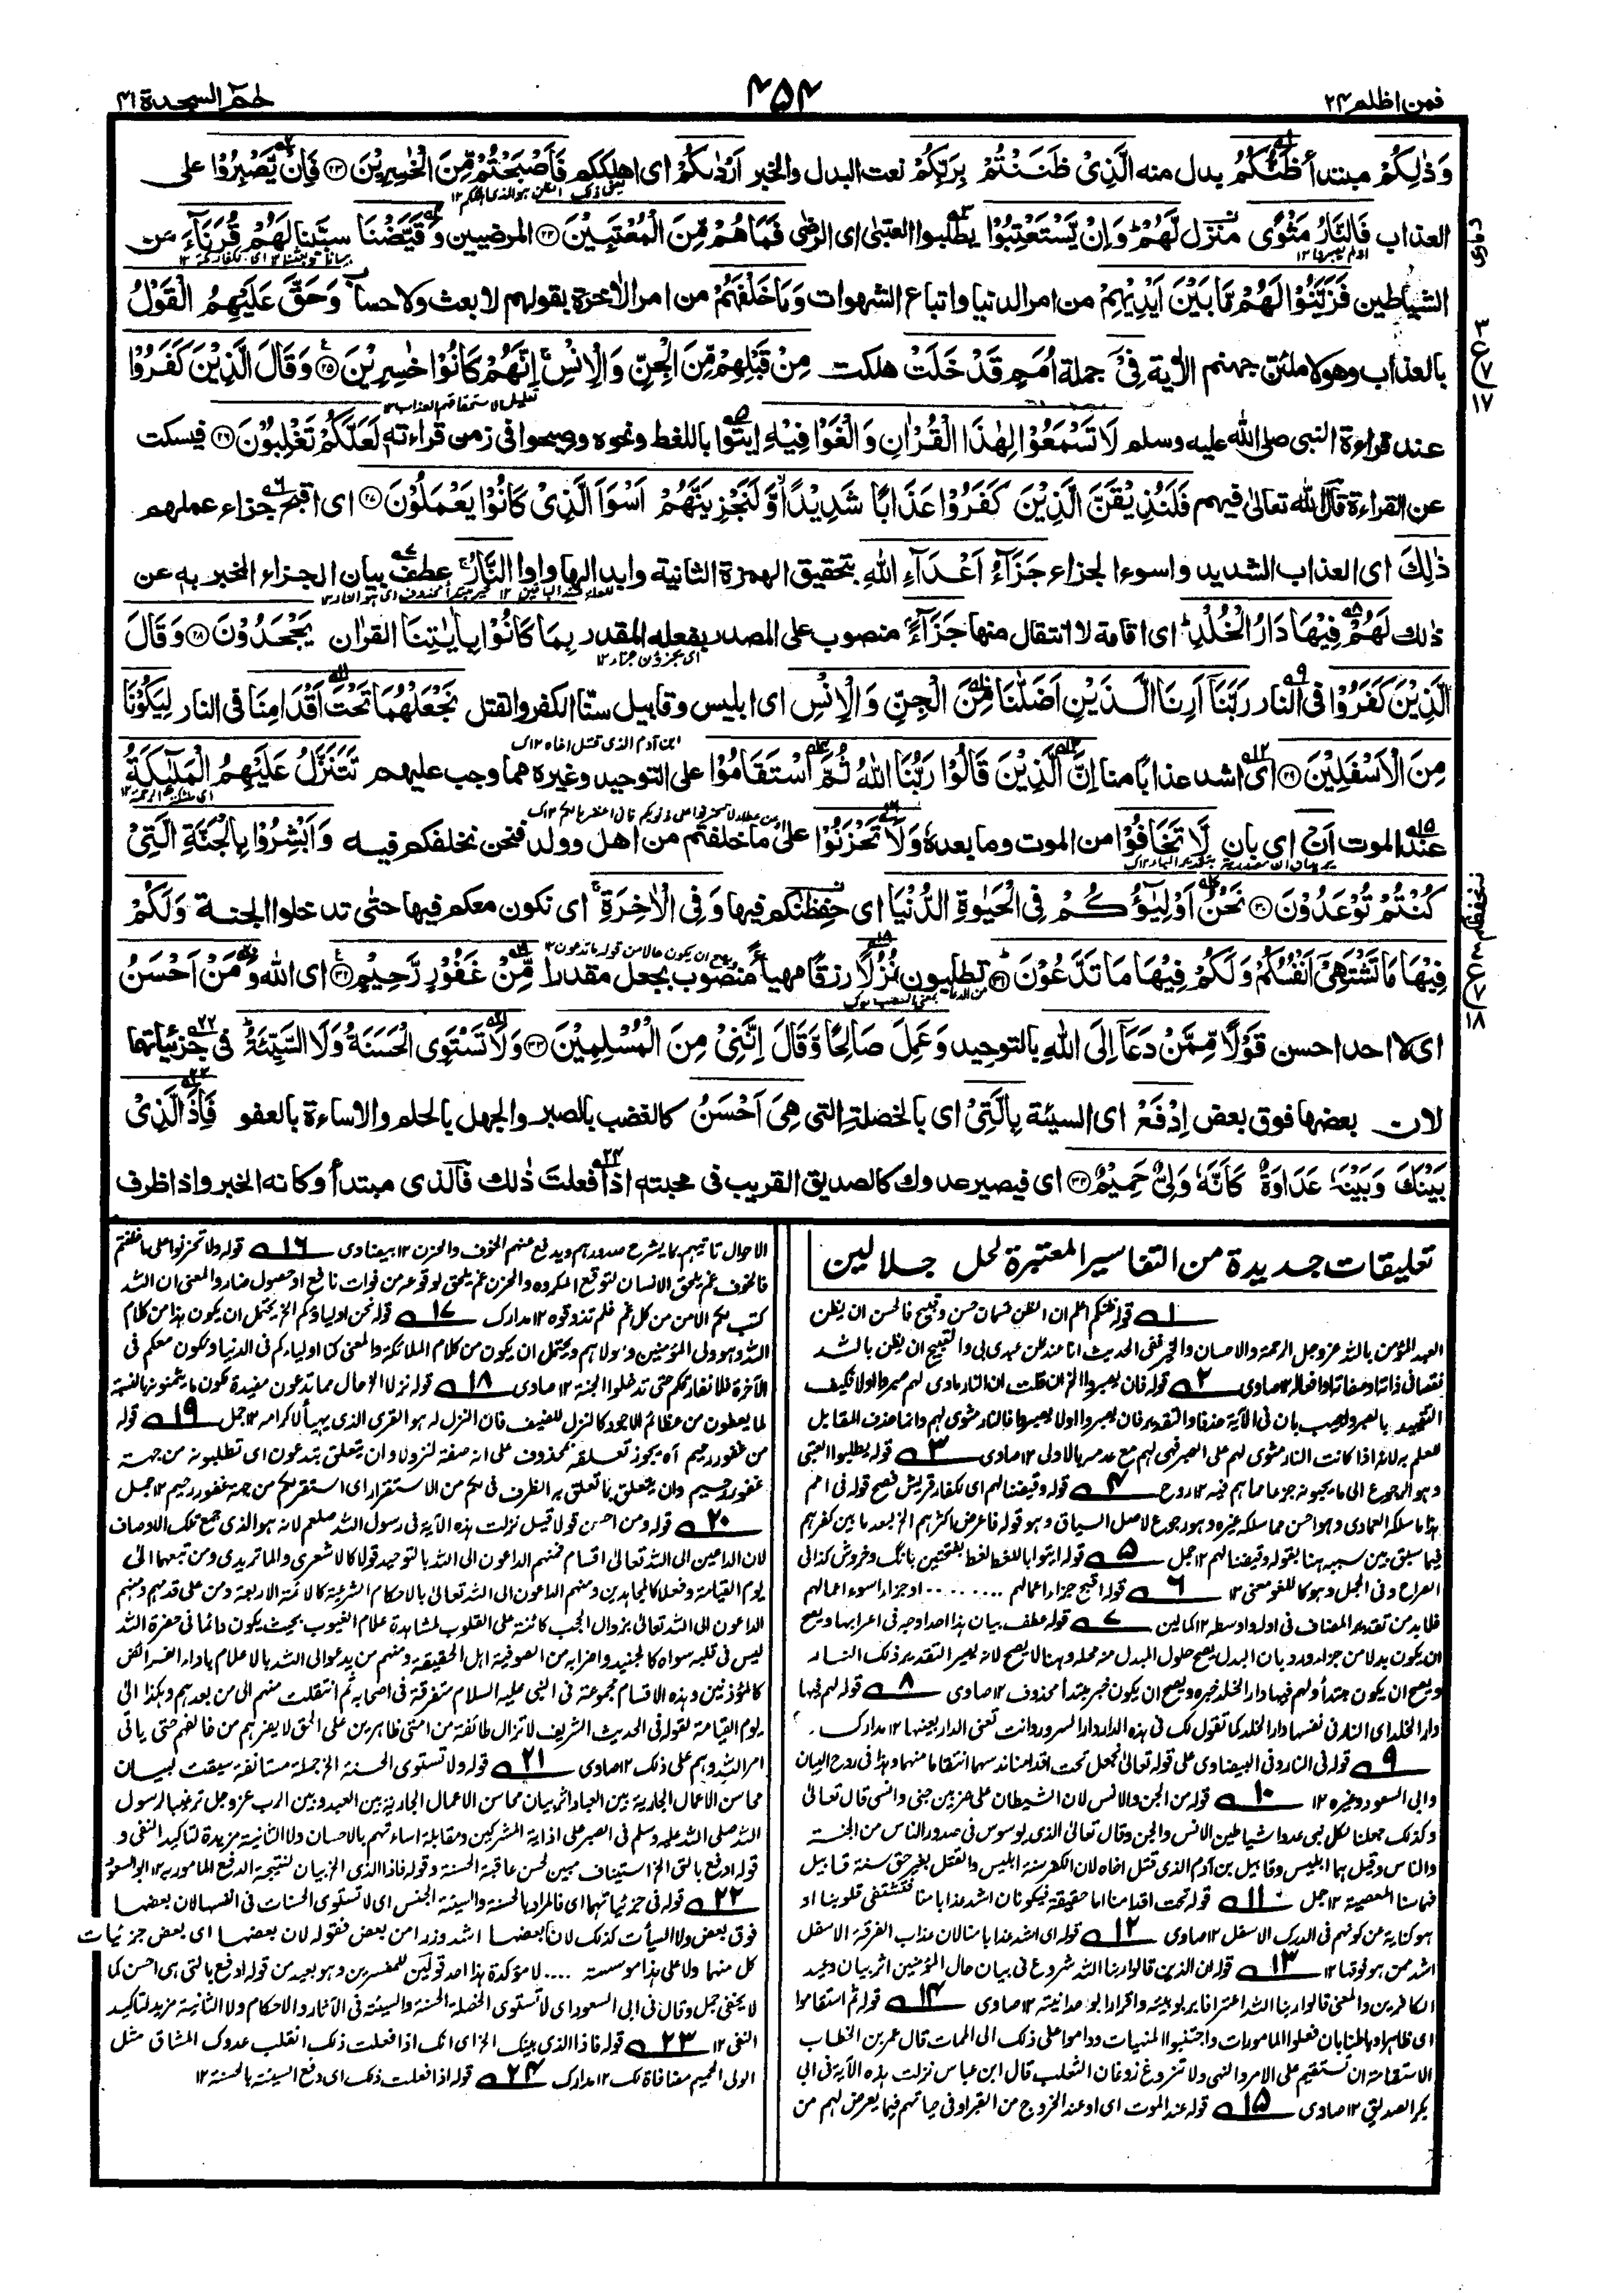 فمن اظلم ٢٤
٤٥٤
حٰم السجدة ٤١
وَذٰلِكُمْ مبتدأ ظَنُّكُمُ بدل منه الَّذِيْ ظَنَنْتُمْ بِرَبِّكُمْ نعت البدل والخبر اَرْدٰىكُمْ اى اهلككم فَاَصْبَحْتُمْ مِّنَ الْخٰسِرِيْنَ ٢٣ فَاِنْ يَّصْبِرُوْا على
العذاب فَالنَّارُ مَثْوًى منزل لَّهُمْ وَاِنْ يَّسْتَعْتِبُوْا يطلبوا العتبى اى الرضى فَمَا هُمْ مِّنَ الْمُعْتَبِيْنَ ٢٤ المرضيين وَقَيَّضْنَا سببنا لَهُمْ قُرَنَآءَ من
الشياطين فَزَيَّنُوْا لَهُمْ مَّا بَيْنَ اَيْدِيْهِمْ من امر الدنيا واتباع الشهوات وَمَا خَلْفَهُمْ من امر الاخرة بقولهم لا بعث ولا حساب وَحَقَّ عَلَيْهِمُ الْقَوْلُ
بالعذاب وهو لاملئن جهنم الاٰية فِيْٓ جملة اُمَمٍ قَدْ خَلَتْ هلكت مِنْ قَبْلِهِمْ مِّنَ الْجِنِّ وَالْاِنْسِ اِنَّهُمْ كَانُوْا خٰسِرِيْنَ ٢٥ وَقَالَ الَّذِيْنَ كَفَرُوْا
عند قراءة النبى صلى الله عليه وسلم لَا تَسْمَعُوْا لِهٰذَا الْقُرْاٰنِ وَالْغَوْا فِيْهِ ايتوا باللغط ونحوه وصيحوا فى زمن قراءته لَعَلَّكُمْ تَغْلِبُوْنَ ٢٦ فيسكت
عن القراءة قال الله تعالىٰ فيهم فَلَنُذِيْقَنَّ الَّذِيْنَ كَفَرُوْا عَذَابًا شَدِيْدًا وَّلَنَجْزِيَنَّهُمْ اَسْوَاَ الَّذِيْ كَانُوْا يَعْمَلُوْنَ ٢٧ اى اقبح جزاء عملهم
ذٰلِكَ اى العذاب الشديد واسوء الجزاء جَزَآءُ اَعْدَآءِ اللّٰهِ بتحقيق الهمزة الثانية وابدالها واوا النَّارُ عطف بيان الجزاء المخبر به عن
ذلك لَهُمْ فِيْهَا دَارُ الْخُلْدِ اى اقامة لا انتقال منها جَزَآءًۢ منصوب على المصدر بفعله المقدر بِمَا كَانُوْا بِاٰيٰتِنَا القراٰن يَجْحَدُوْنَ ٢٨ وَقَالَ
الَّذِيْنَ كَفَرُوْا فى النار رَبَّنَآ اَرِنَا الَّذَيْنِ اَضَلّٰنَا مِنَ الْجِنِّ وَالْاِنْسِ اى ابليس وقابيل سنّا الكفر والقتل نَجْعَلْهُمَا تَحْتَ اَقْدَامِنَا فى النار لِيَكُوْنَا
مِنَ الْاَسْفَلِيْنَ ٢٩ اى اشد عذابا منا اِنَّ الَّذِيْنَ قَالُوْا رَبُّنَا اللّٰهُ ثُمَّ اسْتَقَامُوْا على التوحيد وغيره مما وجب عليهم تَتَنَزَّلُ عَلَيْهِمُ الْمَلٰٓئِكَةُ
عند الموت اَنْ اى بان لَّا تَخَافُوْا من الموت وما بعده وَلَا تَحْزَنُوْا على ما خلفتم من اهل وولد فنحن نخلفكم فيه وَاَبْشِرُوْا بِالْجَنَّةِ الَّتِيْ
كُنْتُمْ تُوْعَدُوْنَ ٣٠ نَحْنُ اَوْلِيٰٓؤُكُمْ فِى الْحَيٰوةِ الدُّنْيَا اى حفظنكم فيها وَفِى الْاٰخِرَةِ اى نكون معكم فيها حتى تدخلوا الجنة وَلَكُمْ
فِيْهَا مَا تَشْتَهِيْٓ اَنْفُسُكُمْ وَلَكُمْ فِيْهَا مَا تَدَّعُوْنَ ٣١ تطلبون نُزُلًا رزقا مهيأ منصوب بجعل مقدرا مِّنْ غَفُوْرٍ رَّحِيْمٍ ٣٢ اى الله وَمَنْ اَحْسَنُ
اى لا احد احسن قَوْلًا مِّمَّنْ دَعَآ اِلَى اللّٰهِ بالتوحيد وَعَمِلَ صَالِحًا وَّقَالَ اِنَّنِيْ مِنَ الْمُسْلِمِيْنَ ٣٣ وَلَا تَسْتَوِى الْحَسَنَةُ وَلَا السَّيِّئَةُ فى جزئياتها
لان بعضها فوق بعض اِدْفَعْ اى السيئة بِالَّتِيْ اى بالخصلة التى هِيَ اَحْسَنُ كالغضب بالصبر والجهل بالحلم والاساءة بالعفو فَاِذَا الَّذِيْ
بَيْنَكَ وَبَيْنَهٗ عَدَاوَةٌ كَاَنَّهٗ وَلِيٌّ حَمِيْمٌ ٣٤ اى فيصير عدوك كالصديق القريب فى محبته اذا فعلت ذٰلك فالذى مبتدأ وكانه الخبر واذا ظرف
تعليقات جديدة من التفاسير المعتبرة لحل جلالين
١ قوله ظنكم اعلم ان الظن قسمان حسن وقبيح فالحسن ان يظن
العبد المؤمن بالله عز وجل الرحمة والاحسان والخير ففى الحديث انا عند ظن عبدى بى والقبيح ان يظن بالله
نقصا فى ذاته او صفاته او افعاله ١٢ صاوى ٢ قوله فان يصبروا الخ ان قلت ان النار ماوى لهم صبروا اولا فكيف
التقييد بالصبر واجيب بان فى الآية حذفا والتقدير فان يصبروا اولا يصبروا فالنار مثوى لهم وانما حذف المقابل
للعلم به لانه اذا كانت النار مثوى لهم على الصبر فهى لهم مع عدمه بالاولى ١٢ صاوى ٣ قوله يطلبوا العتبى
وهو الرجوع الى ما يحبونه جزعا مما هم فيه ١٢ روح ٤ قوله وقيضنا لهم اى لكفار قريش فصح قوله فى امم
هذا ما سلكه العمادى وهو احسن مما سلكه غيره وهو رجوع لاصل السياق وهو قوله فاعرض اكثرهم الخ بعد ما بين كفرهم
فيما سبق بين سببه هنا بقوله وقيضنا لهم ١٢ جمل ٥ قوله ايتوا باللغط لغط بفتحتين بانگ وخروش كذا فى
الصراح وفى الجمل وهو كاللغو معنى ١٢ ٦ قوله اقبح جزاء اعمالهم ........ او جزاء اسوء اعمالهم
فلا بد من تقدير المضاف فى اوله او اوسطه ١٢ كمالين ٧ قوله عطف بيان هذا احد اوجه فى اعرابها ويصح
ان يكون بدلا من جزاء ورد بان البدل يصح حلول المبدل منه محله وهنا لا يصح لانه يصير التقدير ذلك النار
ويصح ان يكون مبتدأ ولهم فيها دار الخلد خبره ويصح ان يكون خبر مبتدأ محذوف ١٢ صاوى ٨ قوله لهم فيها
دار الخلد اى النار فى نفسها دار الخلد كما تقول لك فى هذه الدار دار السرور وانت تعنى الدار بعينها ١٢ مدارك
٩ قوله فى النار وفى البيضاوى على قوله تعالىٰ نجعل تحت اقدامنا ندسهما انتقاما منهما وهذا فى روح البيان
وابى السعود وغيره ١٢ ١٠ قوله من الجن والانس لان الشيطان على ضربين جنى وانسى قال تعالىٰ
وكذلك جعلنا لكل نبى عدوا شياطين الانس والجن وقال تعالىٰ الذى يوسوس فى صدور الناس من الجنة
والناس وقيل هما ابليس وقابيل بن آدم الذى قتل اخاه لان الكفر سنة ابليس والقتل بغير حق سنة قابيل
فهما سنا المعصية ١٢ جمل ١١ قوله تحت اقدامنا اما حقيقة فيكونان اشد عذابا منا فتشتفى قلوبنا او
هو كناية عن كونهم فى الدرك الاسفل ١٢ صاوى ١٢ قوله اى اشد عذابا منا لان عذاب الفرقة الاسفل
اشد من هو فوقها ١٢ ١٣ قوله ان الذين قالوا ربنا الله شروع فى بيان حال المؤمنين اثر بيان وعيد
الكافرين والمعنى قالوا ربنا الله اعترافا بربوبيته واقرارا بوحدانيته ١٢ صاوى ١٤ قوله ثم استقاموا
اى ظاهرا وباطنا بان فعلوا المامورات واجتنبوا المنهيات وداموا على ذلك الى الممات قال عمر بن الخطاب
الاستقامة ان تستقيم على الامر والنهى ولا تزوغ زوغان الثعلب قال ابن عباس نزلت هذه الآية فى ابى
بكر الصديق ١٢ صاوى ١٥ قوله عند الموت اى او عند الخروج من القبر او فى حياتهم فيما يعرض لهم من
الاحوال تاتيهم بما يشرح صدورهم ويدفع عنهم الخوف والحزن ١٢ بيضاوى ١٦ قوله ولا تحزنوا على ما خلفتم
فالخوف غم يلحق الانسان لتوقع المكروه والحزن غم يلحق لوقوعه من فوات نافع او حصول ضار والمعنى ان الله
كتب لكم الامن من كل غم فلم تذوقوه ١٢ مدارك ١٧ قوله نحن اولياؤكم الخ يحتمل ان يكون هذا من كلام
الله وهو ولى المؤمنين ومولاهم ويحتمل ان يكون من كلام الملائكة والمعنى كنا اولياءكم فى الدنيا ونكون معكم فى
الآخرة فلا نفارقكم حتى تدخلوا الجنة ١٢ صاوى ١٨ قوله نزلا الخ حال مما تدعون مفيدة لكون ما يتمنونه بالنسبة
لما يعطون من عظائم الاجور كالنزل للضيف فان النزل له هو القرى الذى يهيأ لاكرامه ١٢ جمل ١٩ قوله
من غفور رحيم آه يجوز تعلقه بمحذوف على انه صفة لنزلا وان يتعلق بتدعون اى تطلبونه من جهة
غفور رحيم وان يتعلق بما تعلق به الظرف فى لكم من الاستقرار اى استقر لكم من جهة غفور رحيم ١٢ جمل
٢٠ قوله ومن احسن قولا قيل نزلت هذه الآية فى رسول الله صلعم لانه هو الذى جمع تلك الاوصاف
لان الداعين الى الله تعالىٰ اقسام فمنهم الداعون الى الله بالتوحيد قولا كالاشعرى والماتريدى ومن تبعهما الى
يوم القيامة وفعلا كالمجاهدين ومنهم الداعون الى الله تعالىٰ بالاحكام الشرعية كالائمة الاربعة ومن على قدمهم ومنهم
الداعون الى الله تعالىٰ بزوال الحجب كائنة على القلوب لمشاهدة علام الغيوب بحيث يكون دائما فى حضرة الله
ليس فى قلبه سواه كالجنيد واضرابه من الصوفية اهل الحقيقة ومنهم من يدعو الى الله بالاعلام باداء الفرائض
كالمؤذنين وهذه الاقسام مجموعة فى النبى عليه السلام متفرقة فى اصحابه ثم انتقلت منهم الى من بعدهم وهكذا الى
يوم القيامة لقوله فى الحديث الشريف لا تزال طائفة من امتى ظاهرين على الحق لا يضرهم من خالفهم حتى ياتى
امر الله وهم على ذلك ١٢ صاوى ٢١ قوله ولا تستوى الحسنة الخ جملة مستانفة سيقت لبيان
محاسن الاعمال الجارية بين العباد اثر بيان محاسن الاعمال الجارية بين العبد وبين الرب عز وجل ترغيبا لرسول
الله صلى الله عليه وسلم فى الصبر على اذاية المشركين ومقابلة اساءتهم بالاحسان ولا الثانية مزيدة لتاكيد النفى و
قوله ادفع بالتى الخ استيناف مبين لحسن عاقبة الحسنة وقوله فاذا الذى الخ بيان لنتيجة الدفع المامور به ١٢ ابو السعود
٢٢ قوله فى جزئياتهما اى فالمراد بالحسنة والسيئة الجنس اى لا تستوى الحسنات فى انفسها لان بعضها
فوق بعض ولا السيأت كذلك لان بعضها اشد وزرا من بعض فقوله لان بعضها اى بعض جزئيات
كل منهما ولا على هذا موسسة .... لا مؤكدة هذا احد قولين للمفسرين وهو بعيد من قوله ادفع بالتى هى احسن كما
لا يخفى جمل وقال فى ابى السعود اى لا تستوى الخصلة الحسنة والسيئة فى الآثار والاحكام ولا الثانية مزيد لتاكيد
النفى ١٢ ٢٣ قوله فاذا الذى بينك الخ اى انك اذا فعلت ذلك انقلب عدوك المشاق مثل
الولى الحميم مصافاة لك ١٢ مدارك ٢٤ قوله اذا فعلت ذلك اى دفع السيئة بالحسنة ١٢